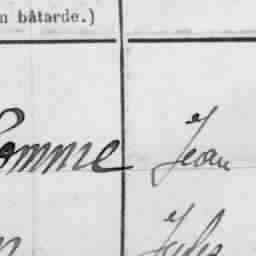 n bâtarde.)
omme Jean
Jules